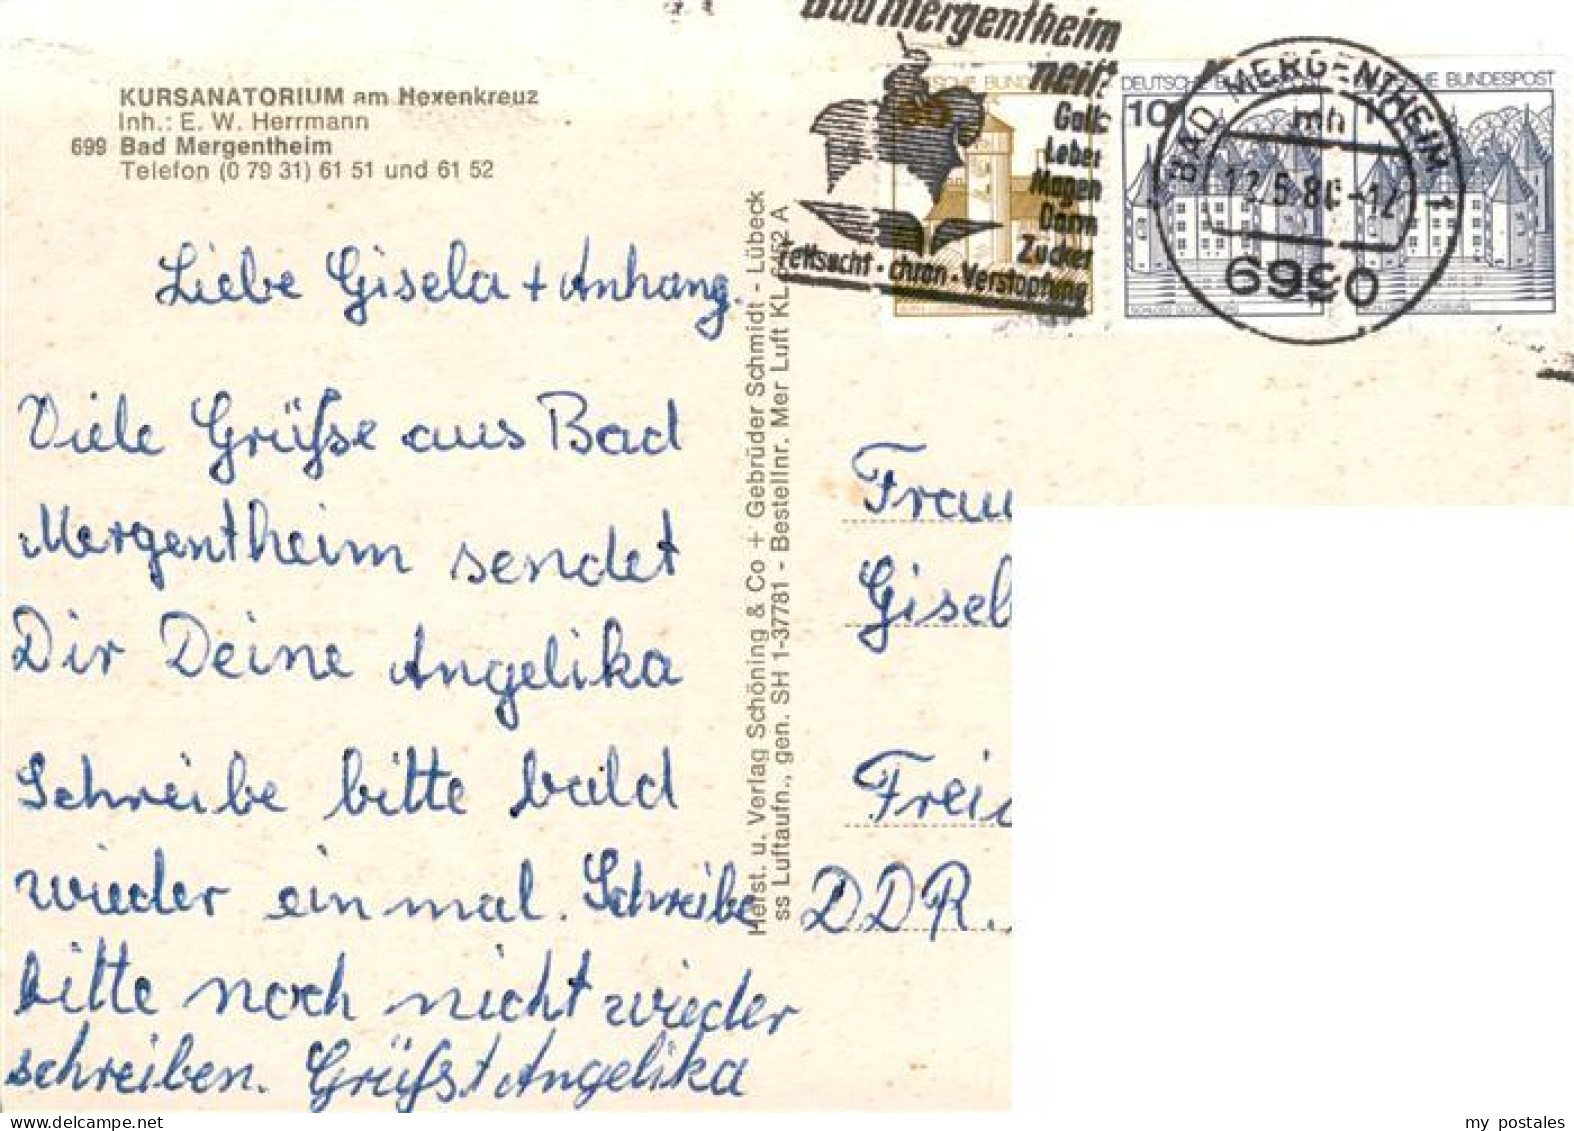 KURSANATORIUM am Hexenkreuz
Inh.: E. W. Herrmann
699 Bad Mergentheim
Telefon (0 79 31) 61 51 und 61 52
Liebe Gisela + Anhang.
Viele Grüße aus Bad
Mergentheim sendet
Dir Deine Angelika
Schreibe bitte bald
wieder einmal. Schreibe
bitte noch nicht wieder
schreiben. Grüßt Angelika
Herst. u. Verlag Schöning & Co + Gebrüder Schmidt - Lübeck
ss Luftaufn., gen. SH 1-37781 - Bestellnr. Mer Luft KL
Bad Mergentheim
heilt
Galle
Leber
Magen
Darm
Zucker
Fettsucht · chron. Verstopfung
DEUTSCHE BUNDESPOST
10
SCHLOSS GLÜCKSBURG
BUNDESPOST
BAD MERGENTHEIM 1
mh
6990
Frau
Gisel
Frei
DDR.
my postales